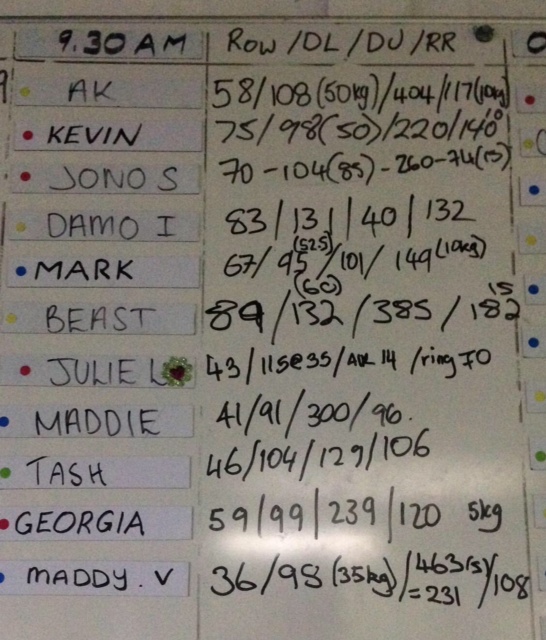 9.30 AM ROW/DL/DU/RR
AK 58/108(50kg)/404/117(10kg)
KEVIN 75/98(50)/220/140 10
JONO S 70-104(85)-260-74(15)
DAMO I 83/131/40/132
MARK 67/95(52.5)/101/149(10kg)
BEAST 89/132(60)/385/182 15
JULIE L 43/115@35/ 14 /ring 70
MADDIE 41/91/300/96.
TASH 46/104/129/106
GEORGIA 59/99/239/120 5kg
MADDY.V 36/98(35kg)/463(s)=231/108